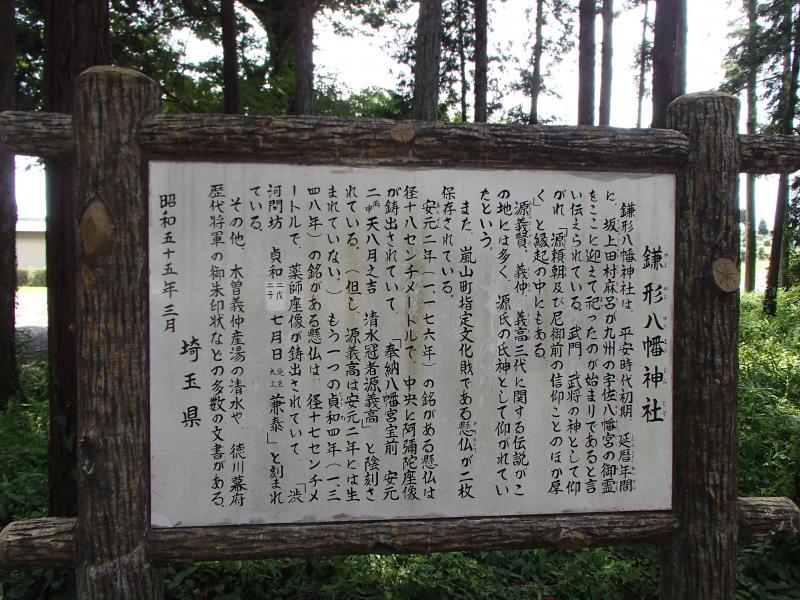 鎌形八幡神社
鎌形八幡神社は、平安時代初期、延暦年間
に、坂上田村麻呂が九州の宇佐八幡宮の御霊
をここに迎えて祀ったのが始まりであると言
い伝えられている。武門、武将の神として仰
がれ、「源頼朝及び尼御前の信仰ことのほか厚
く」と縁起の中にもある。
源義賢、義仲、義高三代に関する伝説がこ
の地には多く、源氏の氏神として仰がれてい
たという。
また、嵐山町指定文化財である懸仏が二枚
保存されている。
安元二年（一一七六年）の銘がある懸仏は
径十八センチメートルで、中央に阿彌陀座像
が鋳出されていて、「奉納八幡宮宝前　安元
二丙申天八月之吉　清水冠者源義高」と陰刻さ
れている。（但し、源義高は安元二年には生
まれていない。）もう一つの貞和四年（一三
四八年）の銘がある懸仏は、径十七センチメ
ートルで、薬師座像が鋳出されていて、「渋
河閑坊　貞和二二戊子　七月日大工兼泰」と刻まれ
ている。
その他、木曽義仲産湯の清水や、徳川幕府
歴代将軍の御朱印状などの多数の文書がある。
昭和五十五年三月
埼玉県